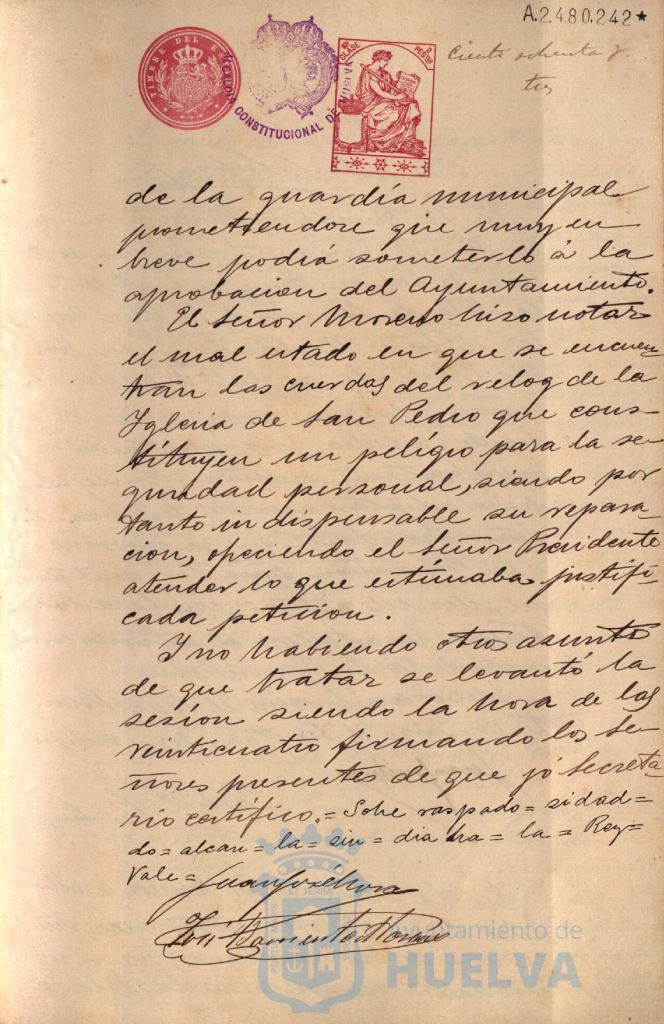 A.2.480.242*
TIMBRE DEL ES
CONSTITUCIONAL DE HUELVA
CLASE
PESTAS
Ciento ochenta y
tres
de la guardia municipal
prometiendose que muy en
breve podrá someterlo á la
aprobacion del Ayuntamiento.
El Señor Moreno hizo notar
el mal estado en que se encuen-
tran las cuerdas del relog de la
Iglesia de San Pedro que cons-
tituyen un peligro para la se-
guridad personal, siendo por
tanto indispensable su repara-
cion, ofreciendo el Señor Presidente
atender lo que estimaba justifi-
cada peticion.
Y no habiendo otros asuntos
de que tratar se levantó la
sesión siendo la hora de las
veinticuatro firmando los Se-
ñores presentes de que yó Secreta-
rio certifico.= Sobre raspado = sidad=
do = alcan = la = sin = dia = la = Rey=
Vale=
Ayuntamiento de
HUELVA